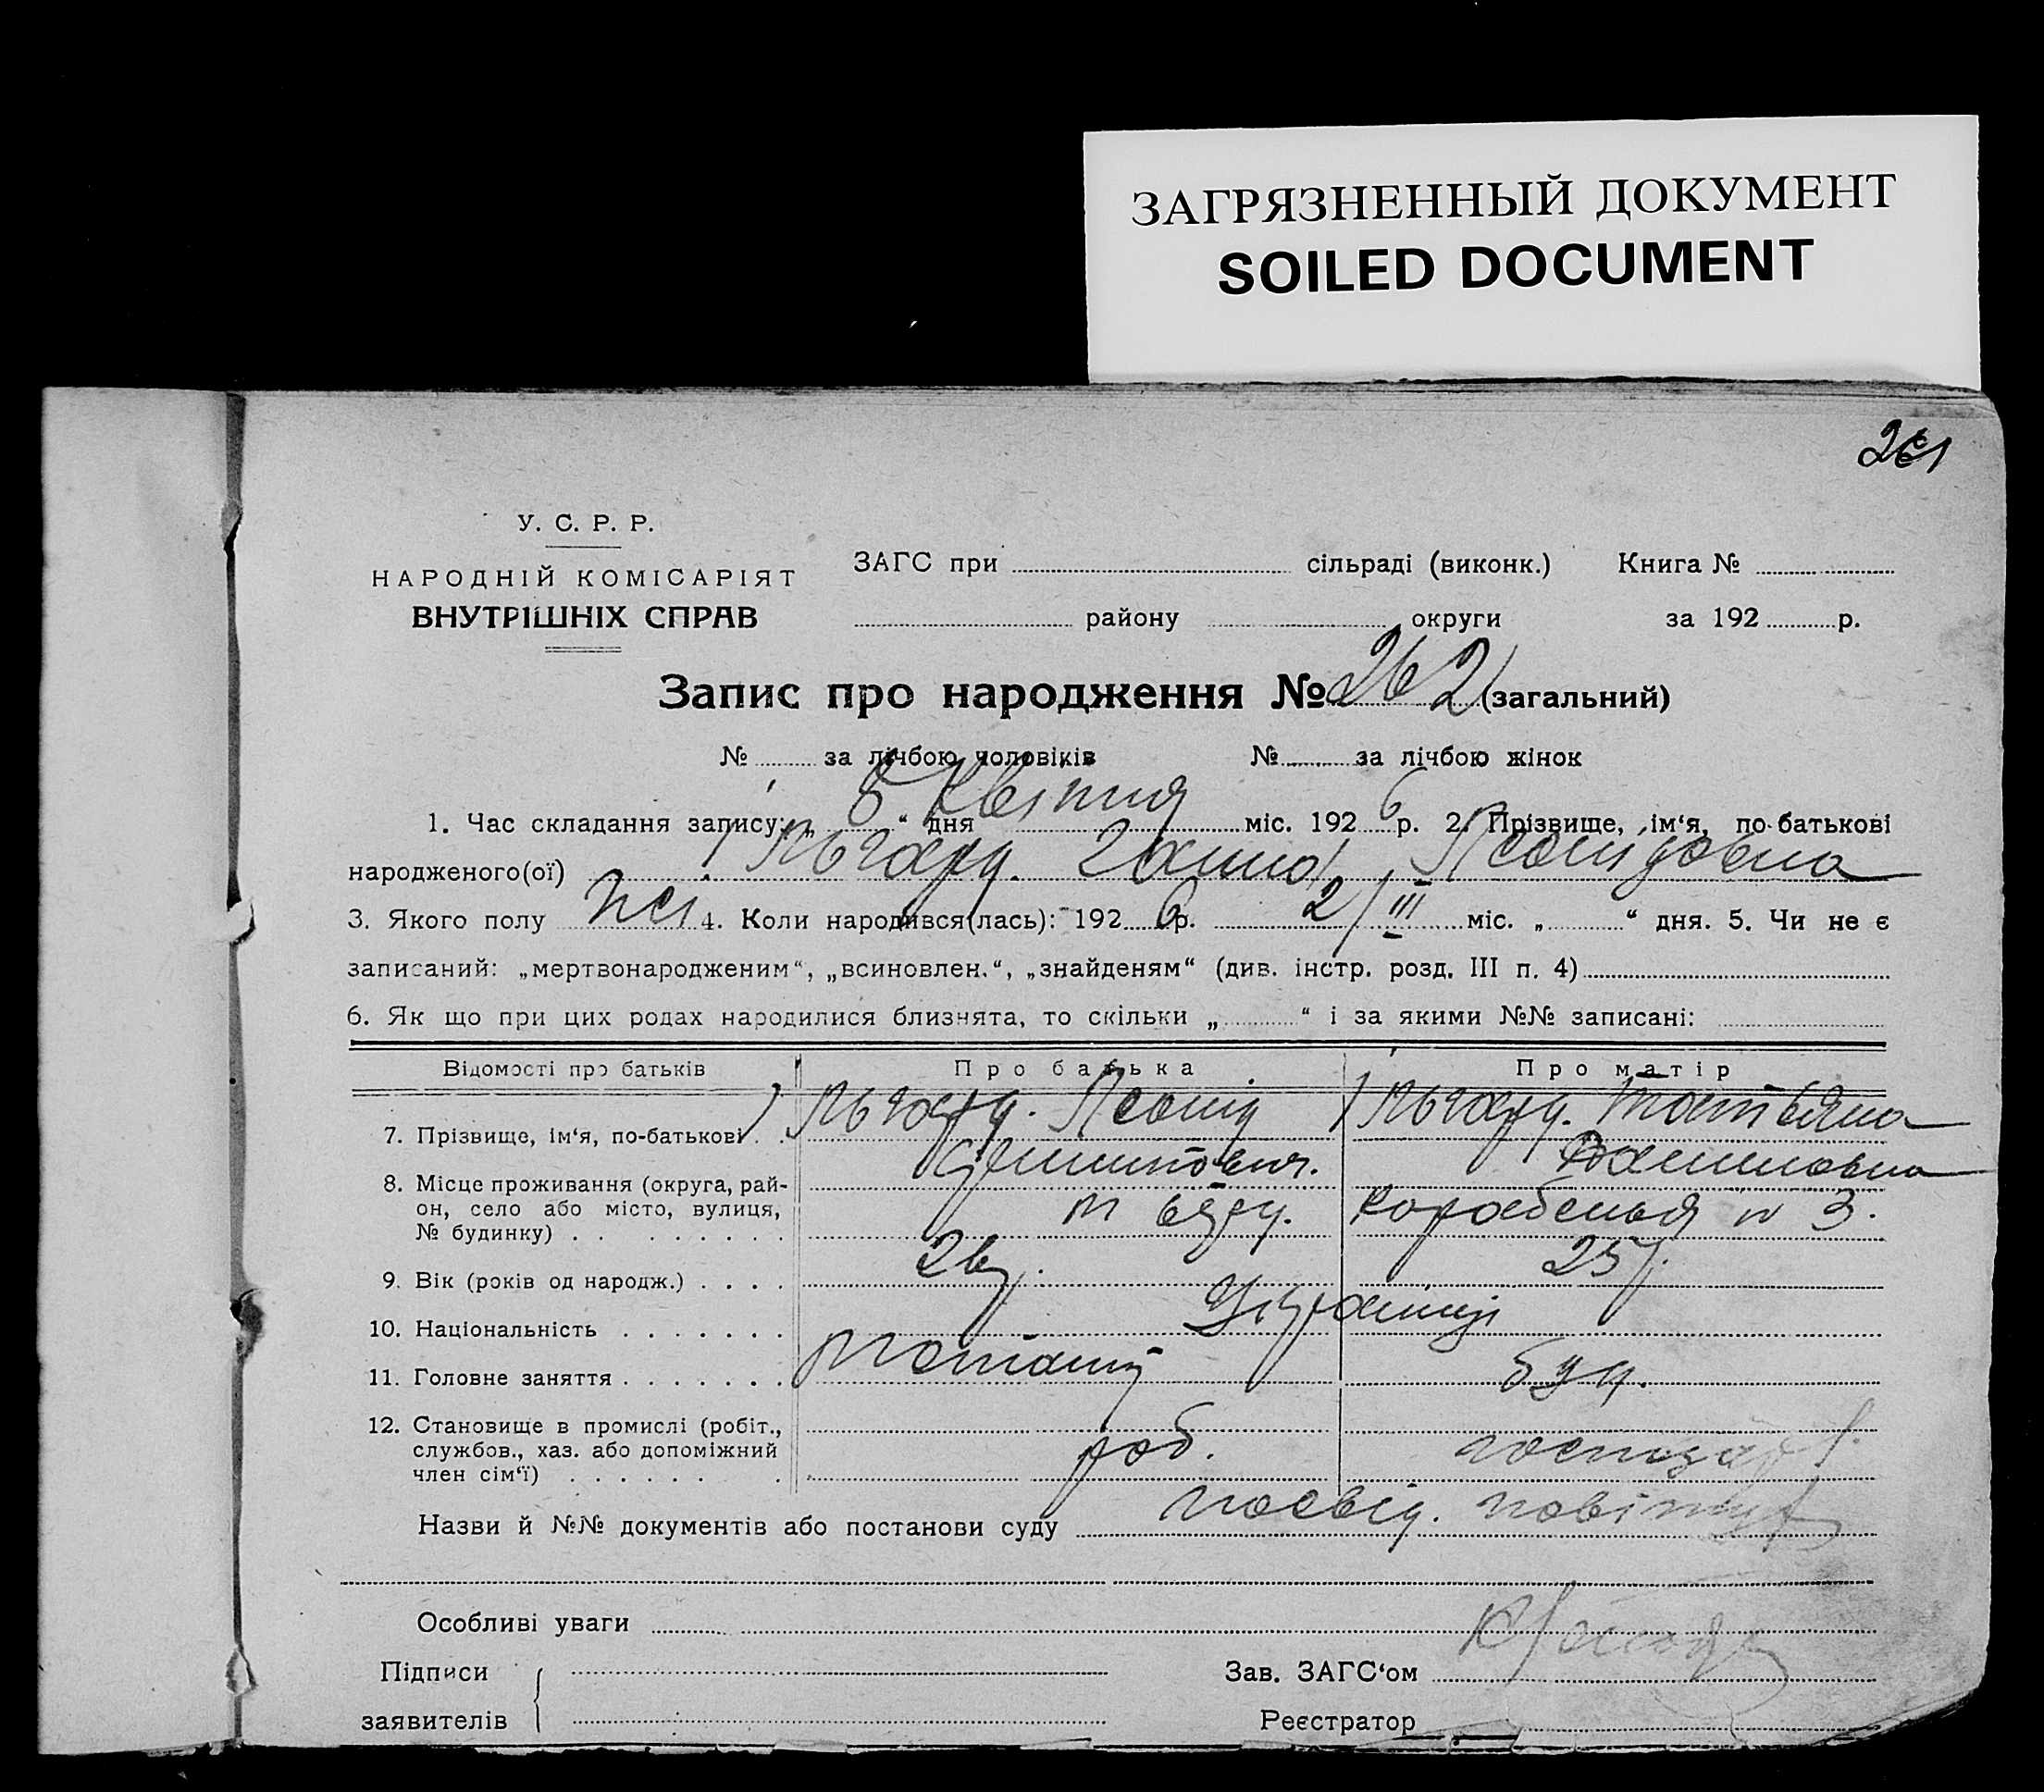 ЗАГРЯЗНЕННЫЙ ДОКУМЕНТ
SOILED DOCUMENT
У. С. Р. Р.
НАРОДНІЙ КОМІСАРІЯТ
ВНУТРІШНІХ СПРАВ
ЗАГС при сільраді (виконк.) Книга №
району округи за 192 р.
Запис про народження № 262 (загальний)
№ за лічбою чоловіків № за лічбою жінок
1. Час складання запису: „ 5 “ дня Квітня міс. 192 6 р. 2. Прізвище, ім‘я, по-батькові
народженого(ої) Ганна Леонідовна
3. Якого полу жін 4. Коли народився(лась): 192 6 р. 2/III міс. „ “ дня. 5. Чи не є
записаний: „мертвонародженим“, „всиновлен.“, „знайденям“ (див. інстр. розд. III п. 4)
6. Як що при цих родах народилися близнята, то скільки „ “ і за якими №№ записані:
Відомості про батьків Про батька Про матір
7. Прізвище, ім‘я, по-батькові Леонід Татьяна
8. Місце проживання (округа, рай-
он, село або місто, вулиця,
№ будинку)
9. Вік (років од народж.) 26р. 25р.
10. Національність Українці
11. Головне заняття
12. Становище в промислі (робіт.,
службов., хаз. або допоміжний
член сім‘ї) роб. господар
Назви й №№ документів або постанови суду посвід. повітух
Особливі уваги
Підписи
заявителів
Зав. ЗАГС‘ом
Реєстратор